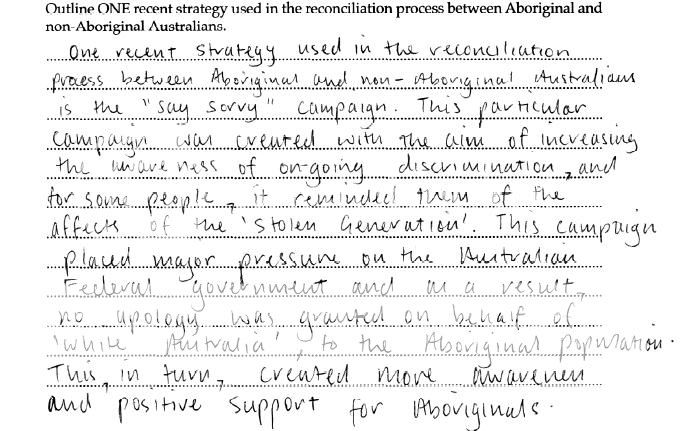 Outline ONE recent strategy used in the reconciliation process between Aboriginal and
non-Aboriginal Australians.
One recent strategy used in the reconciliation
process between Aboriginal and non-Aboriginal Australians
is the "say sorry" campaign. This particular
campaign was created with the aim of increasing
the awareness of on-going discrimination, and
for some people, it reminded them of the
affects of the 'Stolen Generation'. This campaign
placed major pressure on the Australian
Federal government and as a result,
no apology was granted on behalf of
'white Australia', to the Aboriginal population.
This, in turn, created more awareness
and positive support for Aboriginals.